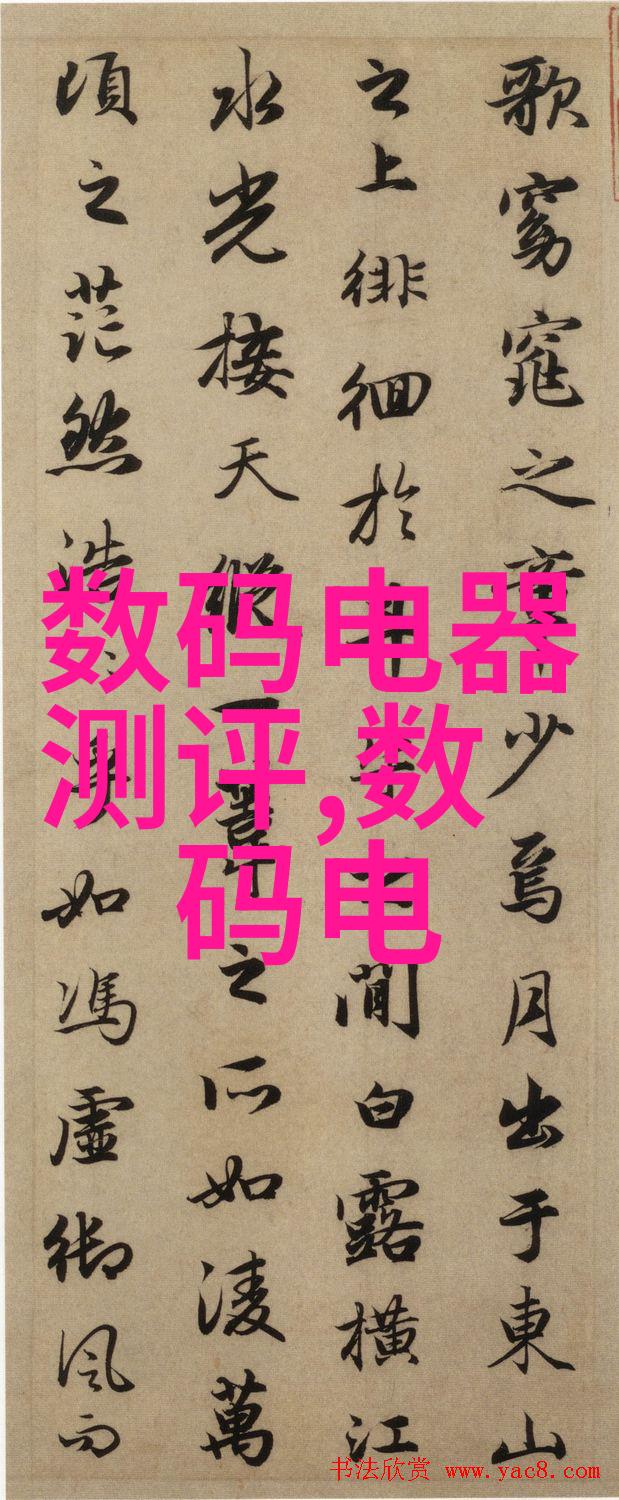 歌窈窕之章少焉月出于東山
之上徘徊於斗牛之間白露橫江
水光接天縱一葦之所如淩萬
頃之茫然浩浩乎如馮虛御風而
数码电器
测评,数
码电
书法欣赏 www.yac8.com